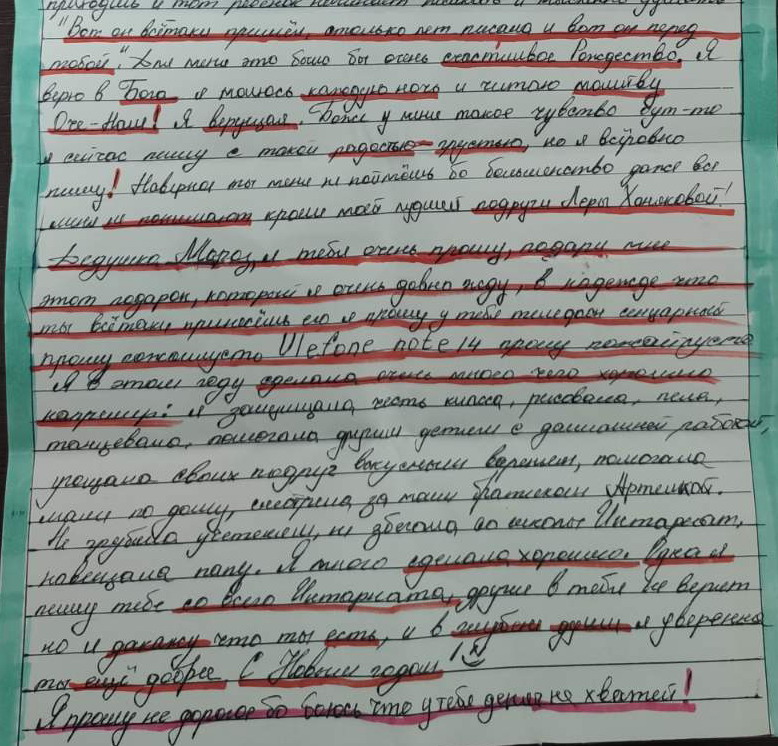 приходишь и тот ребёнок начинает плакать и
"Вот он всётаки пришёл, столько лет писала и вот он перед
тобой". Для меня это было бы очень счастливое Рождество. Я
верю в Бога я молюсь каждую ночь и читаю молитву
Оче-Наш! Я верущая. Боже у меня такое чувство бут-то
я сейчас пишу с такой радостью-грустью, но я всёровно
пишу! Навернае ты меня не поймёшь бо большенство даже все
меня не понимают кроме моей лудшей подруги Леры Хоняковой!
Дедушка Мороз, я тебя очень прошу, подари мне
этот подарок, который я очень давно жду, в надежде что
ты всётаки принесёшь его я прошу у тебя теледон сенцарный
прошу пожалуста Ulefone note 14 прошу пожайлуста
Я в этом году сделала очень много чего хорошего
например: я защищала честь класса, рисовала, пела,
танцевала, помогала другим детям с домашней работой,
угощала своих подруг вкусным варением, помогала
маме по дому, смотрела за моим братиком Артемкой.
Не грубила учетелям, не збегала со школы Интарнат,
навещала папу. Я много сделала хорошего. Одна я
пишу тебе со всего Интарната, другие в тебя не верят
но я дакажу что ты есть, и в глубине души я уверенна
ты ещё добрее С Новым годом!
Я прошу не дорогое бо боюсь что у тебя денег не хватей!